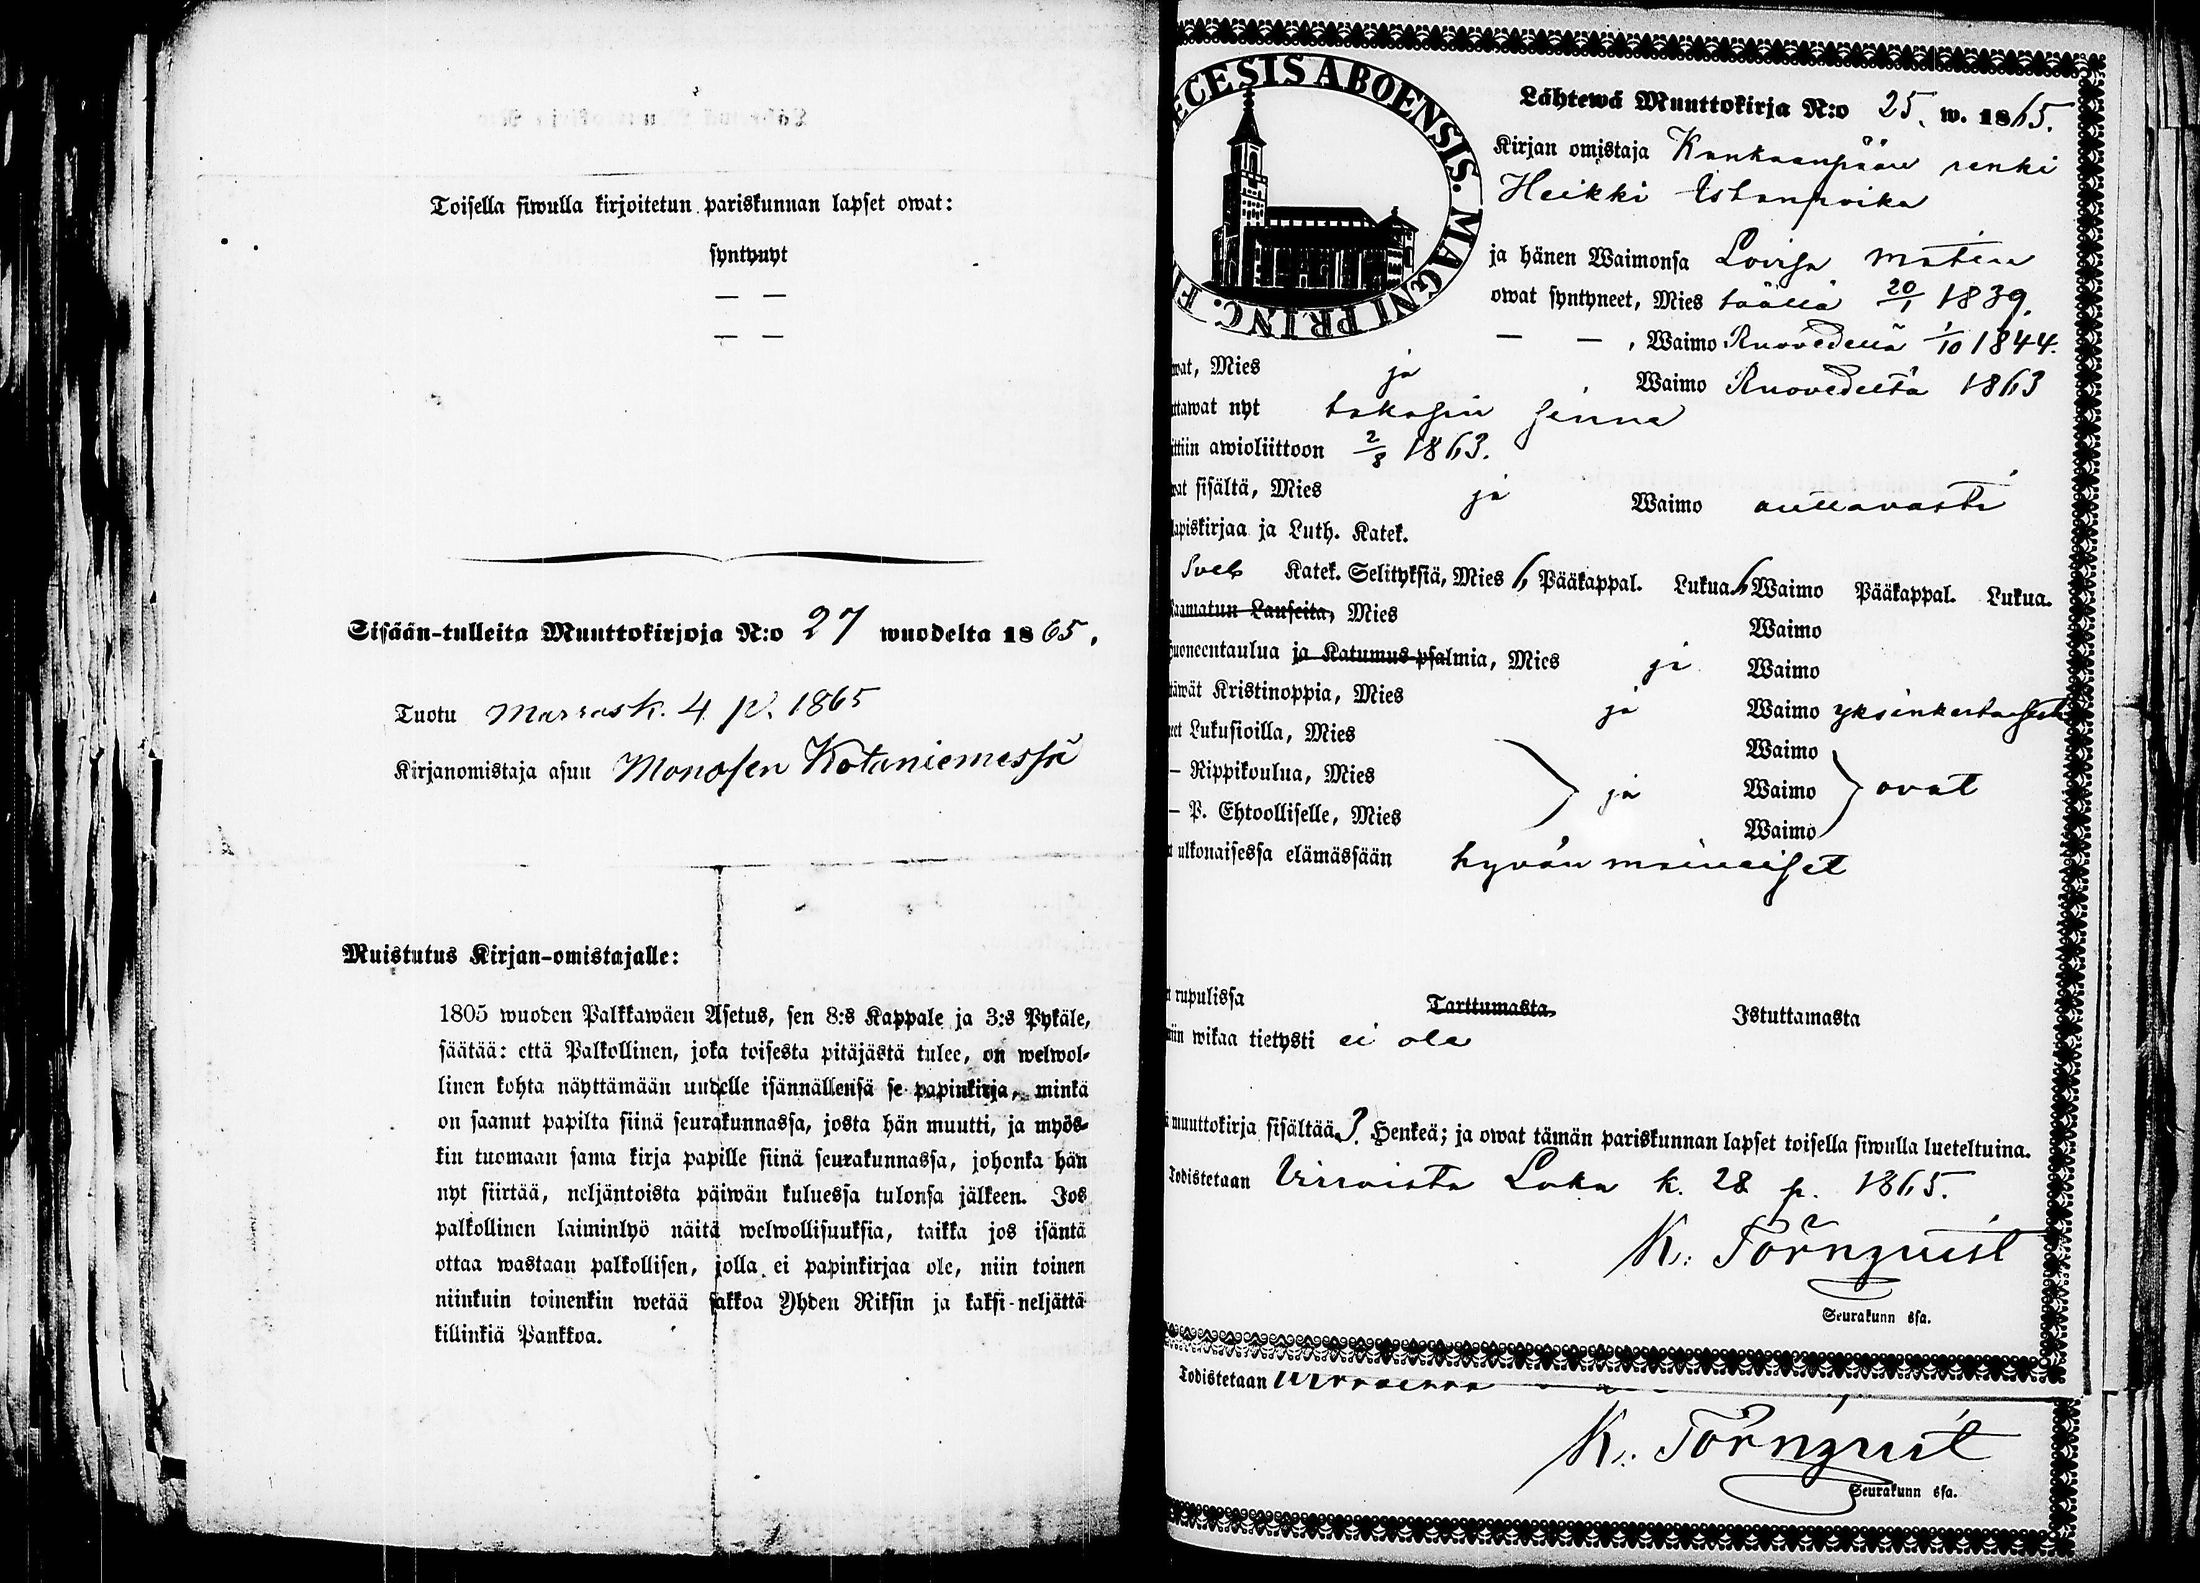 Toisella siwulla kirjoitetun pariskunnan lapset owat:
syntynyt
— —
— —
Sisään-tulleita Muuttokirjoja N:o 27 wuodelta 1865.
Tuotu Marrask. 4 p. 1865
Kirjanomistaja asuu Monosen Kotaniemessä
Muistutus Kirjan-omistajalle:
1805 wuoden Palkkawäen Asetus, sen 8:s Kappale ja 3:s Pykäle,
säätää: että Palkollinen, joka toisesta pitäjästä tulee, on welwol-
linen kohta näyttämään uudelle isännällensä se papinkirja, minkä
on saanut papilta siinä seurakunnassa, josta hän muutti, ja myös-
kin tuomaan sama kirja papille siinä seurakunnassa, johonka hän
nyt siirtää, neljäntoista päiwän kuluessa tulonsa jälkeen. Jos
palkollinen laiminlyö näitä welwollisuuksia, taikka jos isäntä
ottaa wastaan palkollisen, jolla ei papinkirjaa ole, niin toinen
niinkuin toinenkin wetää sakkoa Yhden Riksin ja kaksi-neljättä
killinkiä Pankkoa.
ECESIS ABOENSIS. MAGNI PRINC. F
Lähtewä Muuttokirja N:o 25. w. 1865.
Kirjan omistaja Kankaanpään renki
Heikki
ja hänen Waimonsa Lovisa Matin
owat syntyneet, Mies täällä 20/1 1839.
— — , Waimo Ruovedellä 1/10 1844.
wat, Mies ja Waimo Ruovedeltä 1863
ttawat nyt takasin sinne
ittiin awioliittoon 2/8 1863.
wat sisältä, Mies ja Waimo auttavasti
apiskirjaa ja Luth. Katek.
Sveb Katek. Selityksiä, Mies 6 Pääkappal. Lukua. 6 Waimo Pääkappal. Lukua.
Raamatun Lauseita, Mies Waimo
huoneentaulua ja Katumus-psalmia, Mies ja Waimo
täwät Kristinoppia, Mies ja Waimo yksinkertaisesti
eet Lukusioilla, Mies Waimo
— Rippikoulua, Mies ja Waimo ovat
— P. Ehtoolliselle, Mies Waimo
t ulkonaisessa elämässään hyvän maineiset
t rupulissa Tarttumasta Istuttamasta
niin wikaa tietysti ei ole
ä muuttokirja sisältää 3. Henkeä; ja owat tämän pariskunnan lapset toisella siwulla lueteltuina.
Todistetaan Virroista Loka k. 28 p. 1865.
K. Törnqvist
Seurakunn ssa.
Todistetaan
K. Törnqvist
Seurakunn ssa.